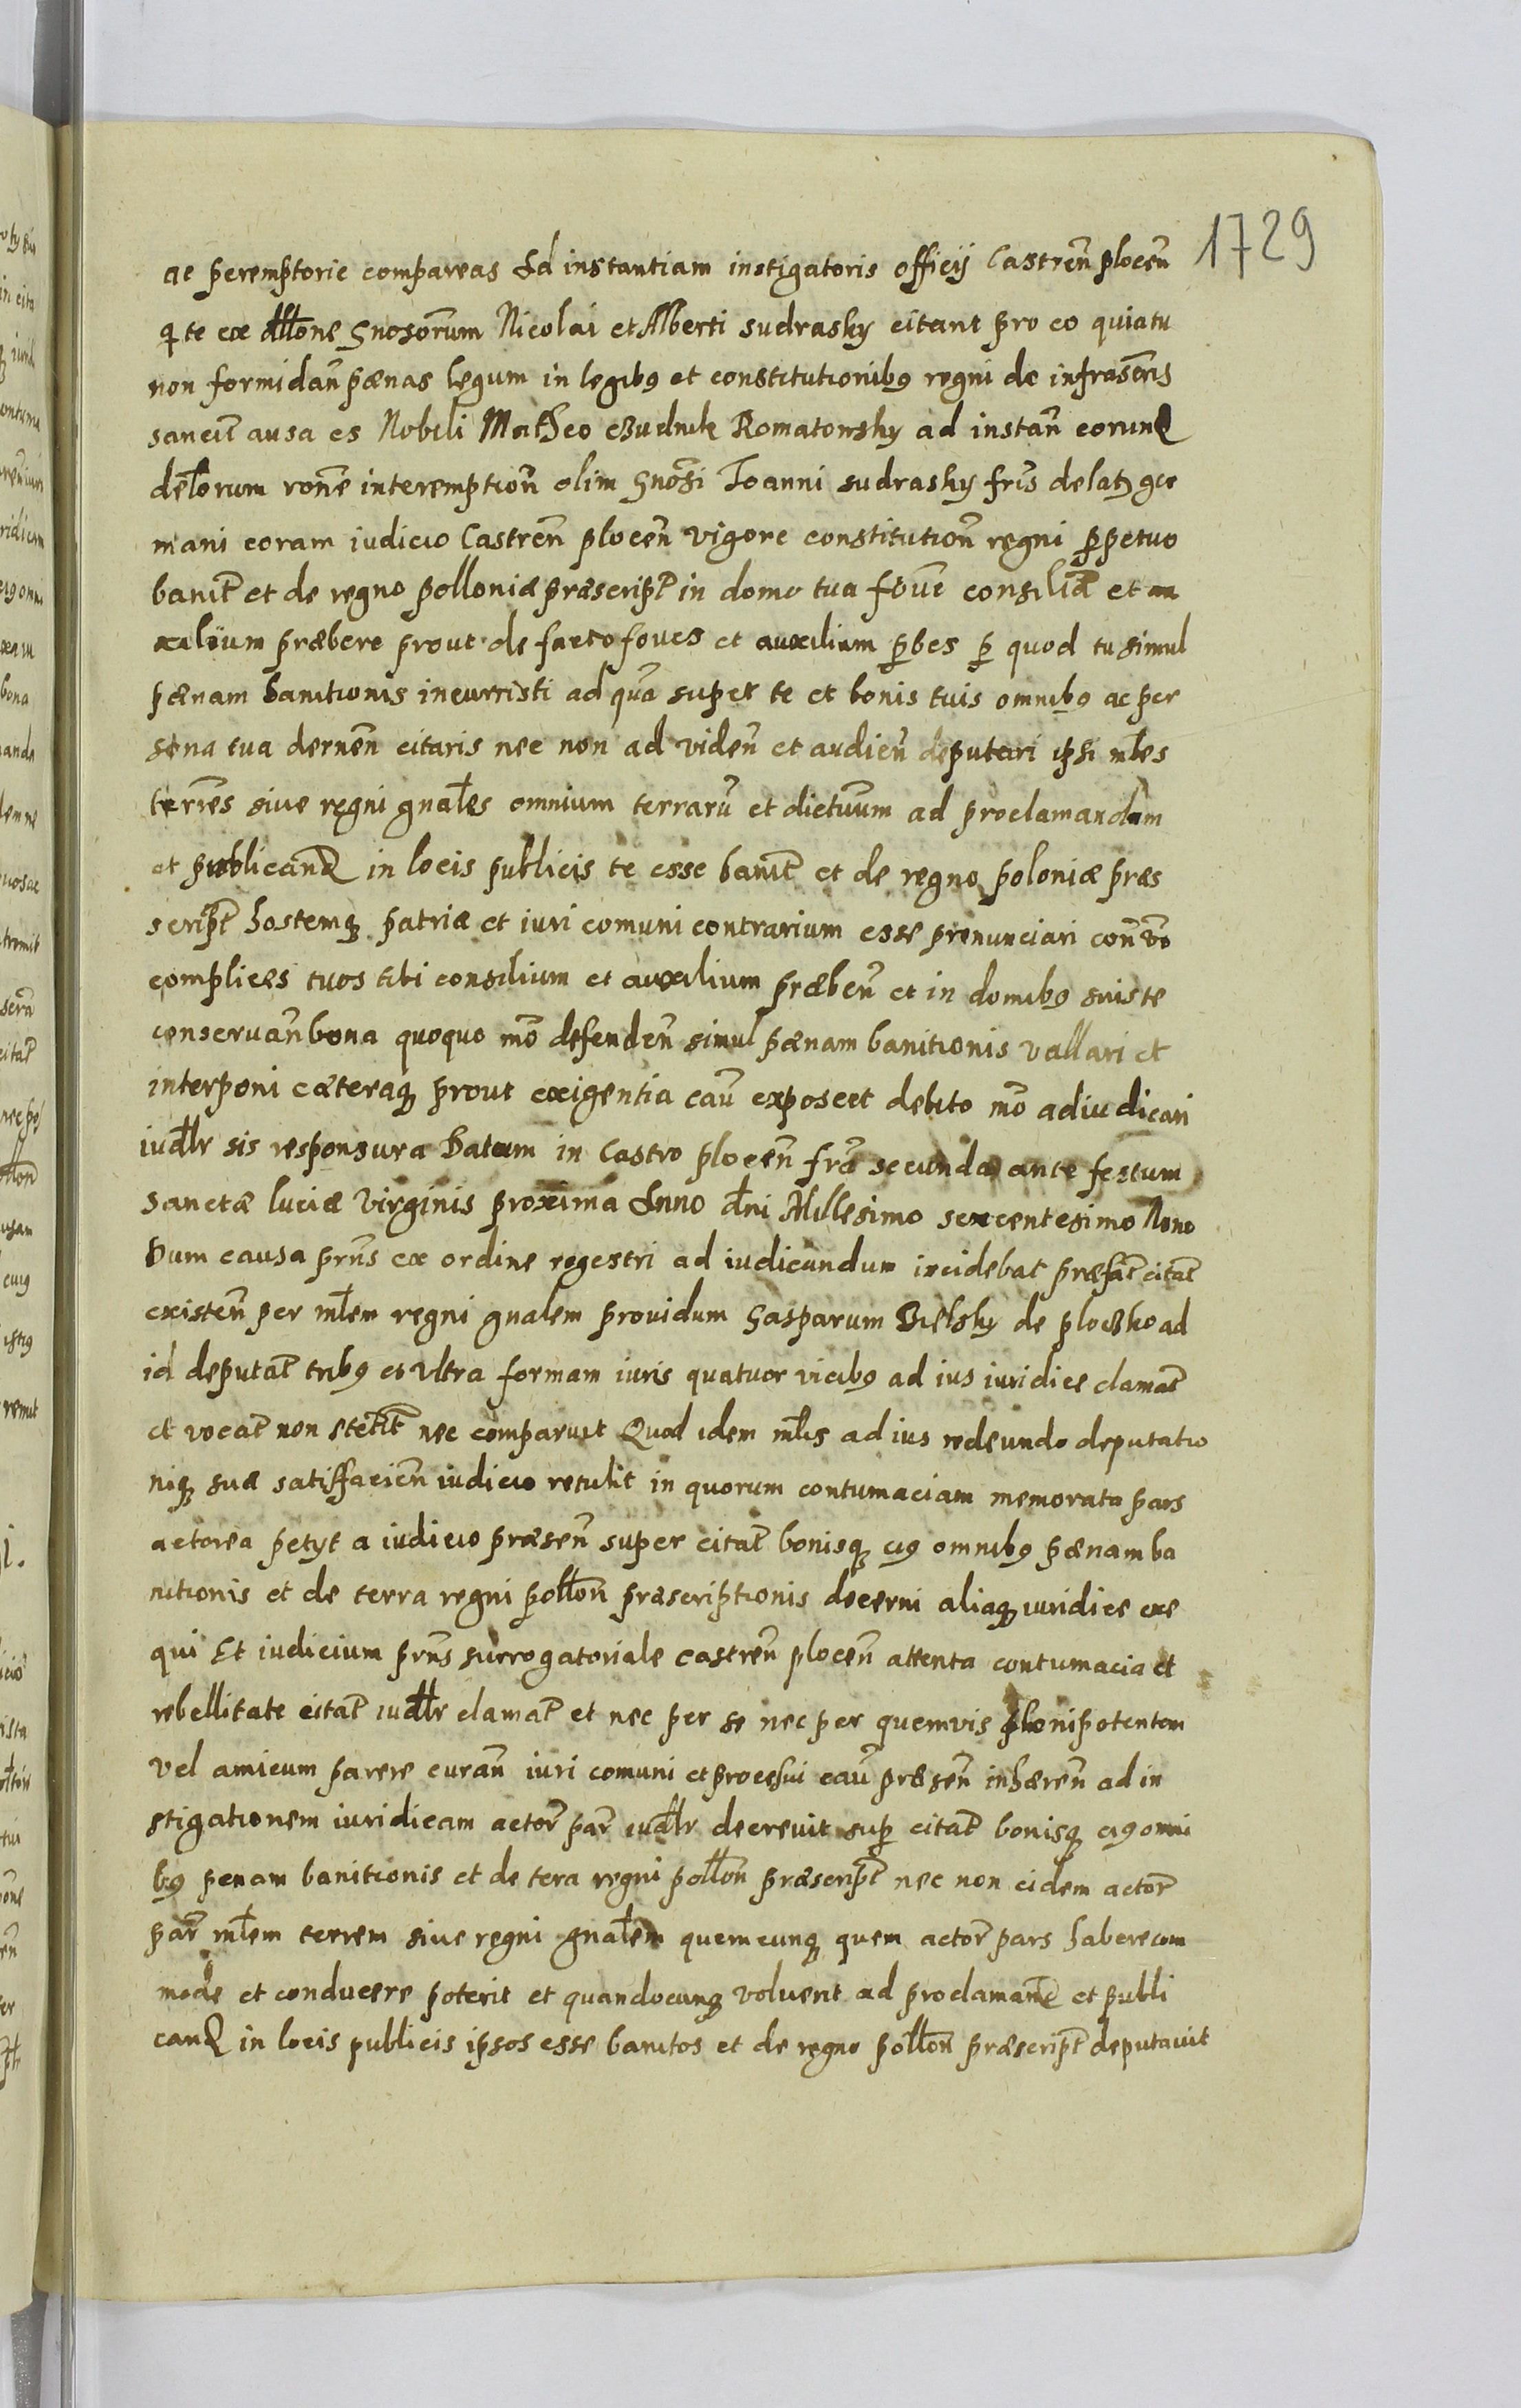 1729
ac peremptorie compareas Ad instantiam instigatoris officij Castren̄ plocen̄
q̨ te ex dl̄lone Gnosorum Nicolai et Alberti sudrasky citant pro eo quia tu
non formidan̄ pænas legum in legib9 et constitutionib9 regni de infrascris
sancit̄ ausa es Nobili Matheo Budnik Romatowsky ad instan̄ eorund
del̄orum ron̄e interemption̄ olim Gnōsi Joanni sudrasky fris̄ delat ger
mani coram iudicio Castren̄ plocen̄ vigore constitution̄ regni ꝑpetuo
banit̄ et de regno polloniæ præscript̄ in domo tua fōue consiliā et au
xilium præbere prout de facto foues et auxilium ꝑbes ꝑ quod tu simul
pænam banitionis incurristi ad quā super te et bonis tuis omnib9 ac per
sona tua dernen̄ citaris nec non ad viden̄ et audien̄ deputari ipsi ml̄es
terres̄ siue regni gnal̄es omnium terrarū et dictuum ad proclamandam
et publicand in locis publicis te esse banit̄ et de regno poloniæ præs
script̄ hostemq̨ patriæ et iuri comuni contrarium esse pronunciari con̄ v̄o
complices tuos tibi consilium et auxilium præben̄ et in domib9 suis te
conseruan̄ bona quoquo mō defenden̄ simul pænam banitionis vallari et
interponi cæteraq̨ prout exigentia cau̅ exposcet debito mō adiudicari
iudl̄r sis responsura Datum in Castro plocen̄ frā secunda ante festum
Sanctæ luciæ Virginis proxima Anno dn̄i Millesimo sexcentesimo Nono
Dum causa prn̄s ex ordine regestri ad iudicandum incidebat præfat̄ citat̄
existen̄ per ml̄em regni gnalem prouidum Gasparum Bielsky de ploczko ad
id deputat̄ trib9 et vltra formam iuris quatuor vicib9 ad ius iuridice clamat̄
et vocat̄ non stetit̄ nec comparuit Quod idem ml̄is ad ius redeundo deputatio
niq̨ suæ satisfacien̄ iudicio retulit in quorum contumaciam memorata pars
actorea petyt a iudicio præsen̄ super citat̄ bonisq̨ ei9 omnib9 pænam ba
nitionis et de terra regni pol̄lon̄ præscriptionis decerni aliaq̨ iuridice exe
qui Et iudicium prn̄s surrogatoriale castren̄ plocen̄ attenta contumacia et
rebellitate citat̄ iudl̄r clamat̄ et nec per se nec per quemvis plenipotentem
vel amicum parere curan̄ iuri comuni et processui cau̅ præsen̄ inhæren̄ ad in
stigationem iuridicam actor̄ par̄ iudl̄r decrevit suꝑ citat̄ bonisq̨ ei9 omni
b9 penam banitionis et de tera regni pol̄lon̄ præscript̄ nec non eidem actor̄
par̄ ml̄em terrem siue regni gnal̄em quemcunq̨ quem actor̄ pars habere com
mode et conducere poterit et quandocunq̨ voluerit ad proclamand et publi
cand in locis publicis ipsos esse banitos et de regno pol̄lon̄ præscript̄ deputauit